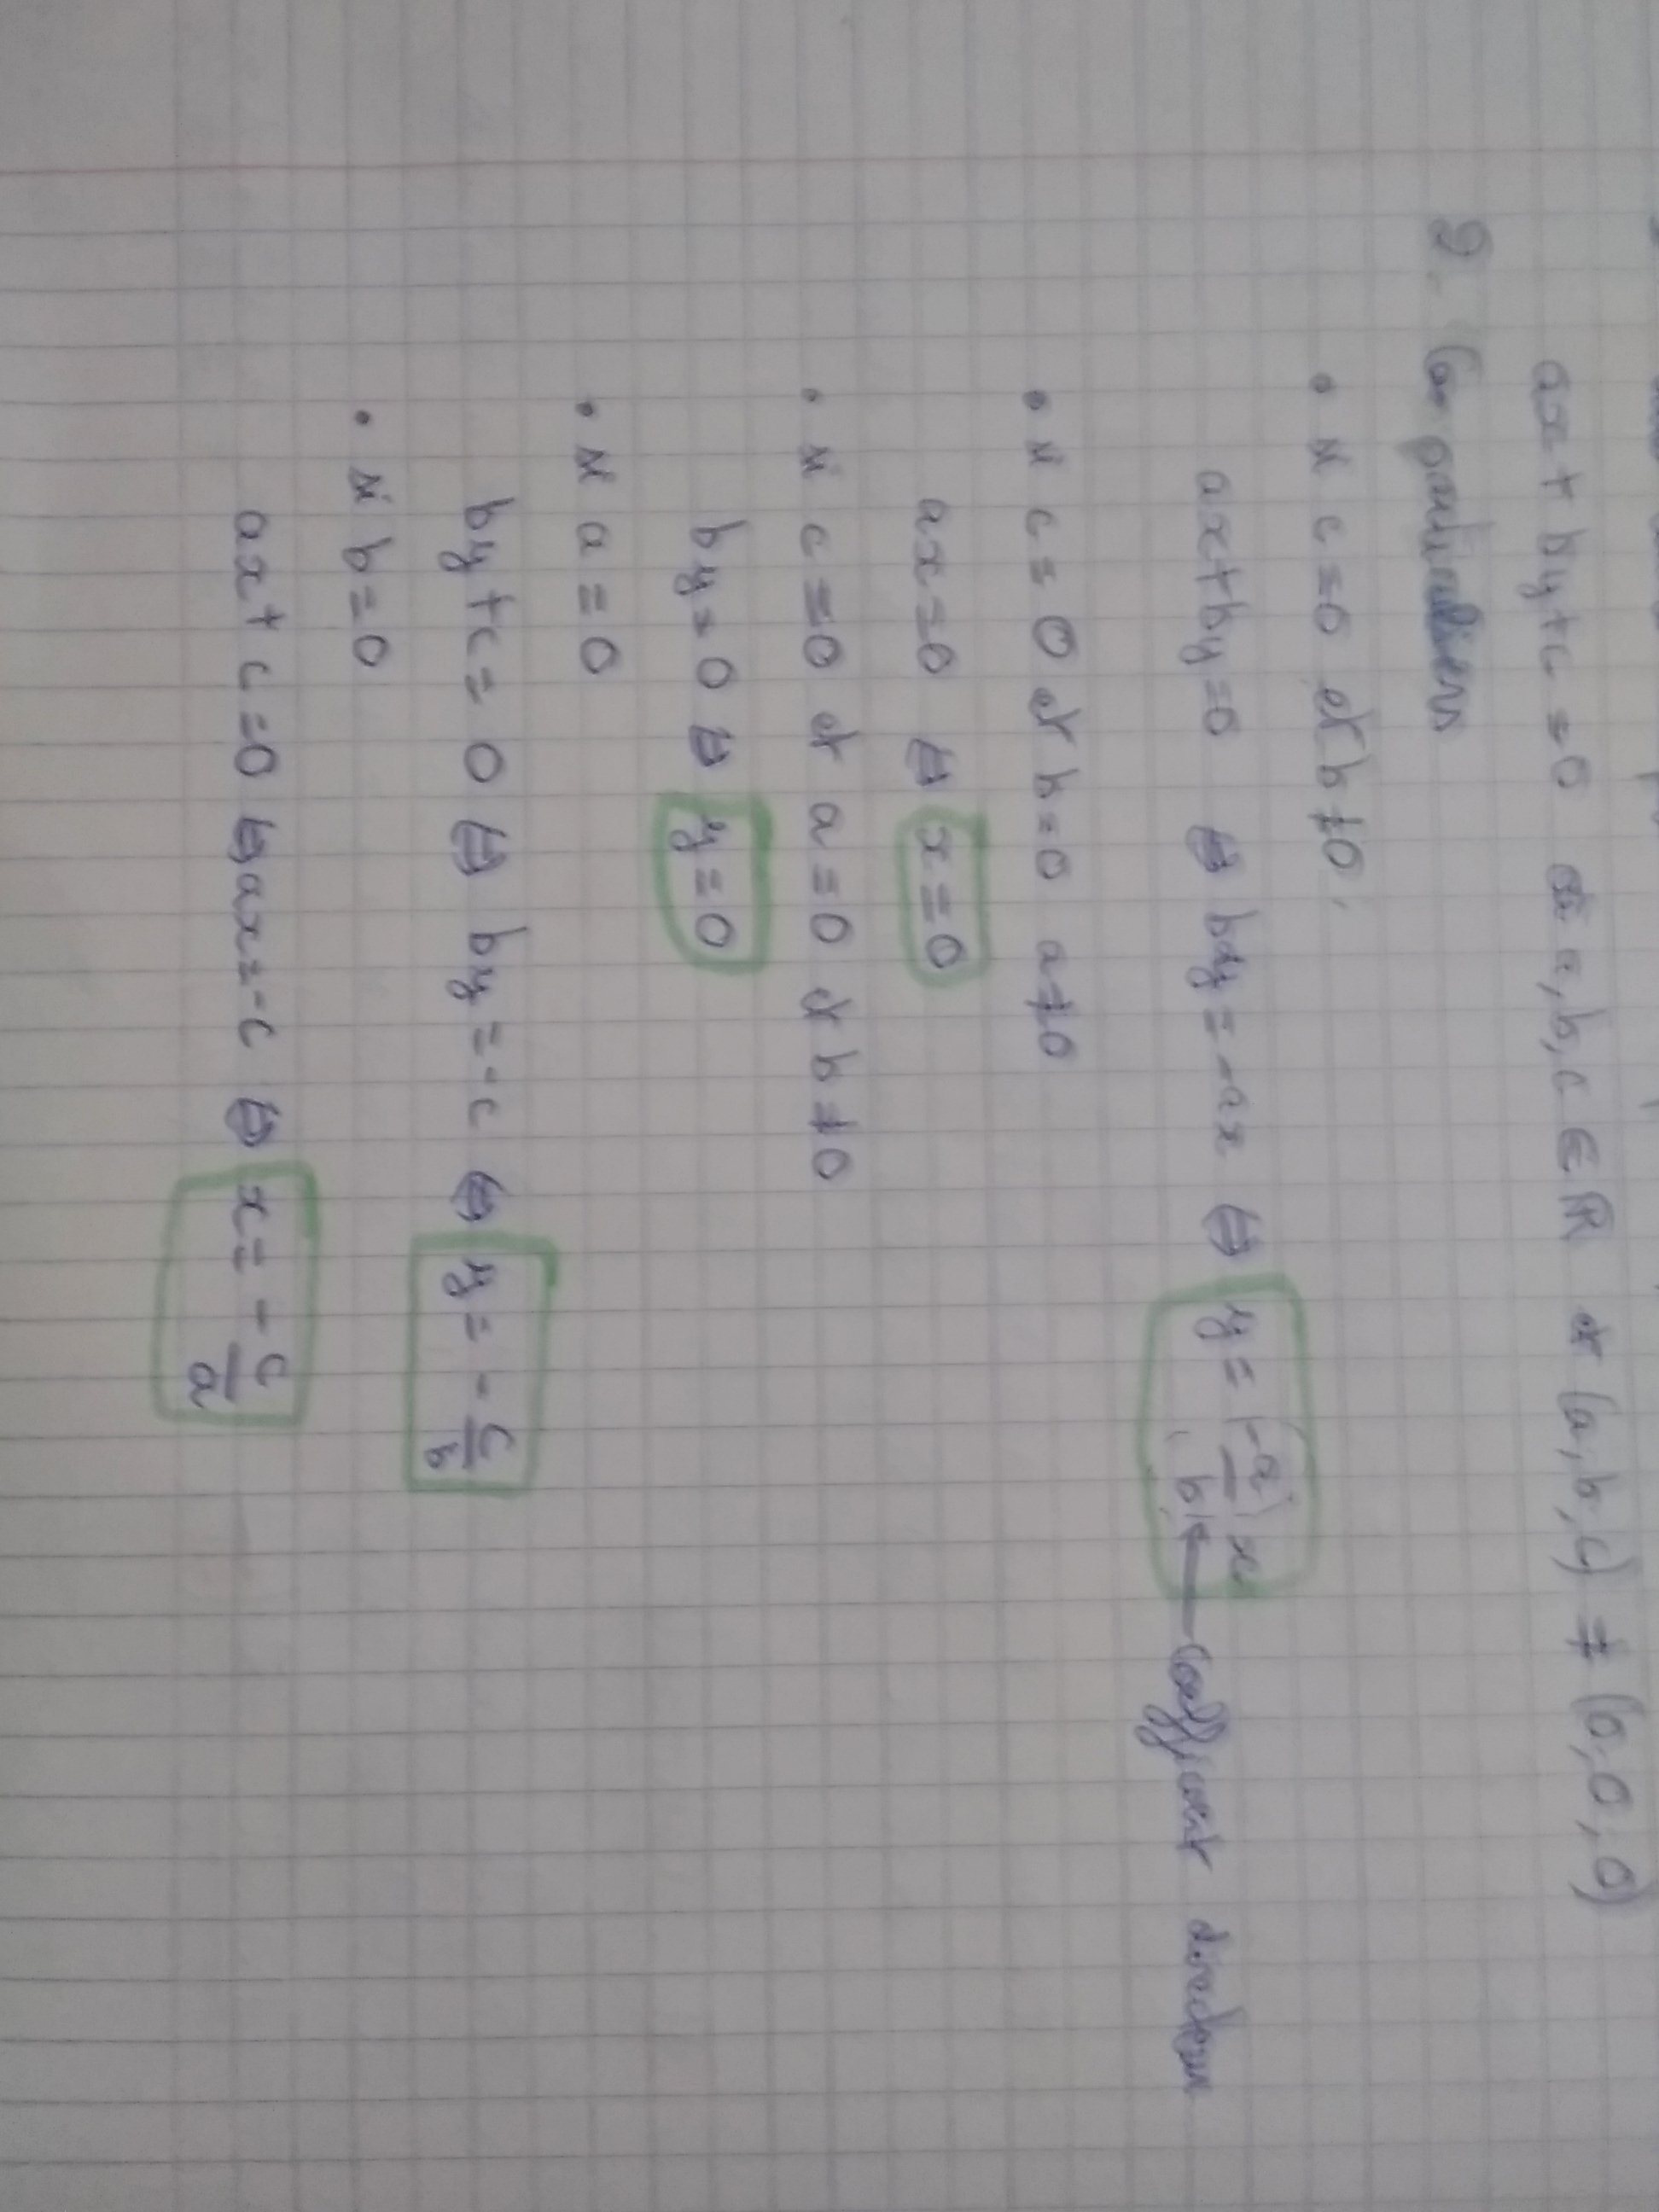 ax + by + c = 0 où a, b, c ∈ ℝ et (a, b, c) ≠ (0, 0, 0)
2. Cas particuliers
• si c = 0 et b ≠ 0,
ax + by = 0 ⇔ by = -ax ⇔ y = (-a/b) x ← coefficient directeur
• si c = 0 et b = 0 a ≠ 0
ax = 0 ⇔ x = 0
• si c = 0 et a = 0 et b ≠ 0
by = 0 ⇔ y = 0
• si a = 0
by + c = 0 ⇔ by = -c ⇔ y = - c/b
• si b = 0
ax + c = 0 ⇔ ax = -c ⇔ x = - c/a